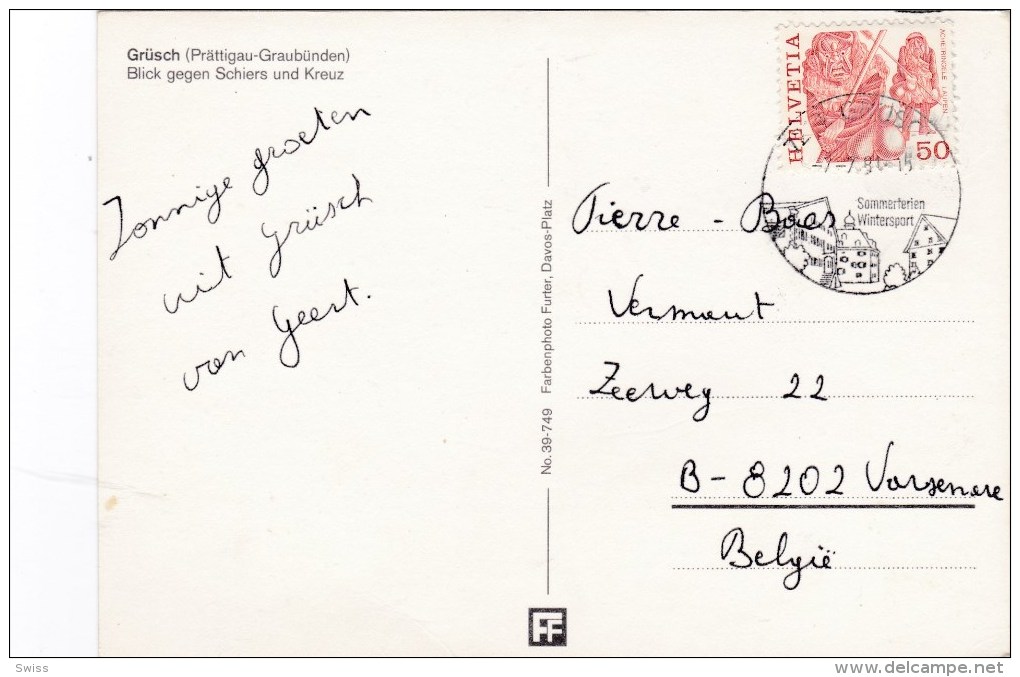 Grüsch (Prättigau-Graubünden)
Blick gegen Schiers und Kreuz
Zonnige groeten
uit Grüsch
van Geert.
No. 39-749 Farbenphoto Furter, Davos-Platz
HELVETIA
ACHETRINGELE LAUPEN
50
-7-7.81-15
Sommerferien
Wintersport
Pierre - Boas
Vermaut
Zeeweg 22
B-8202 Varsenare
België
FF
Swiss
www.delcampe.net